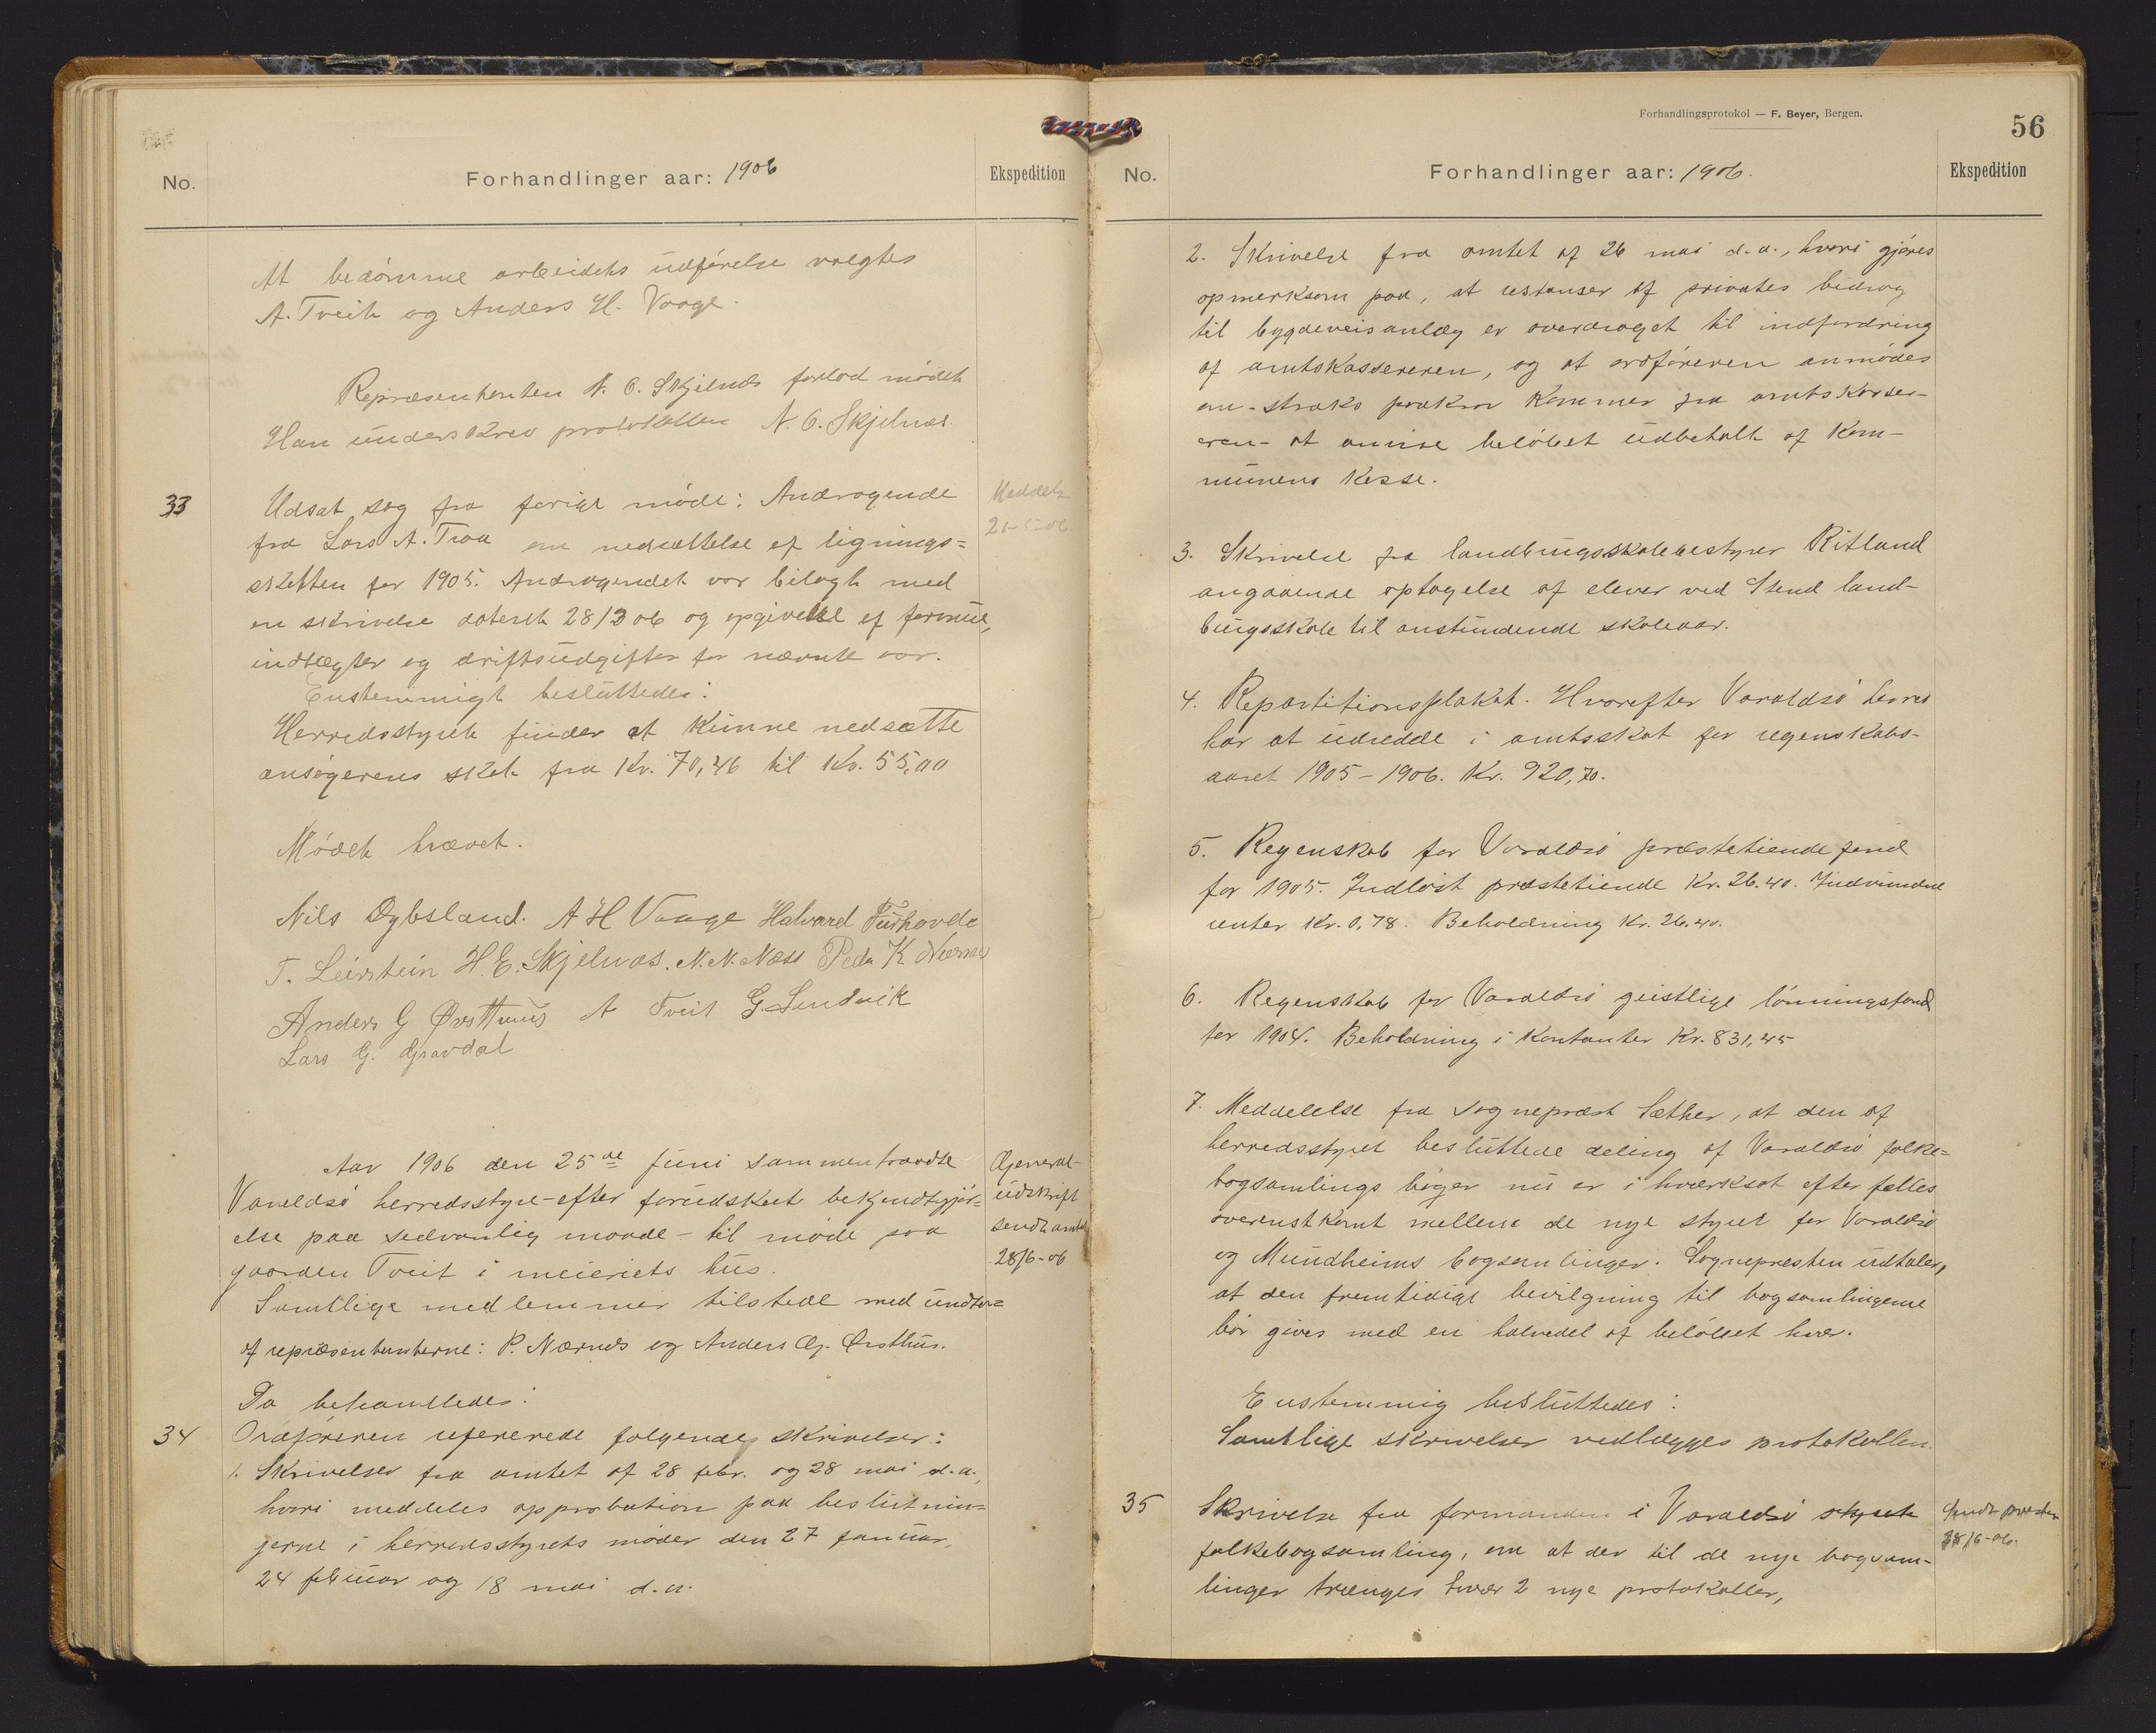 No.
Forhandlinger aar: 1906
Ekspedition
At bedømme arbeidets udførelse valgtes
A. Tveit og Anders H. Vaage.
Repræsentanten N. O. Skjelnæs forlod mødet
Han underskrev protokollen N. O. Skjelnæs.
33
Udsat sag fra forige møde: Andragende
fra Lars A. Traa om nedsættelse af lignings=
skatten for 1905. Andragendet var bilagt med
en skrivelse dateret 28/3 06 og opgivelse af formue,
indtægter og driftsudgifter for nævnte aar.
Enstemmigt besluttedes:
Herredsstyret finder at kunne nedsætte
ansøgerens skat fra Kr. 70,46 til Kr. 55,00
Meddelt
21-5-06
Mødet hævet.
Nils Dybsland. A H Vaage Halvard Tushovde
T. Leirstein H. E. Skjelnæs. N. N. Næss Peder K Nærnes
Anders G Ørsthuus A Tveit G. Sundvik
Lars G. Gravdal
Aar 1906 den 25de Juni sammentraadte
Varaldsø herredsstyre - efter forudskeet bekjendtgjør=
else paa sedvanlig maade - til møde paa
gaarden Tveit i meieriets hus.
Samtlige medlemmer tilstede med undtag=
af repræsentanterne: P. Nærnes og Anders G. Ørsthus.
General-
udskrift
sendt amtet
28/6-06
Da behandledes:
34
Ordføreren refererede følgende skrivelser:
1. Skrivelser fra amtet af 28 febr. og 28 mai d.a.,
hvori meddeles approbation paa beslutnin=
gerne i herredsstyrets møder den 27 januar,
24 februar og 18 mai d.a.
Forhandlingsprotokol — F. Beyer, Bergen.
56
No.
Forhandlinger aar: 1906.
Ekspedition
2. Skrivelse fra amtet af 26 mai d.a., hvori gjøres
opmerksom paa, at restanser af privates bidrag
til bygdeveisanlæg er overdraget til indfordring
af amtskassereren, og at ordføreren anmodes
om - straks paakrav kommer fra amtskasser-
eren - at anvise beløbet udbetalt af kom-
munens kasse.
3. Skrivelse fra landbrugsskolebestyrer Ritland
angaaende optagelse af elever ved Stend land-
brugsskole til anstundende skoleaar.
4. Repartitionsplakat. Hvorefter Varaldsø herred
har at udrede i amtsskat for regnskabs-
aaret 1905-1906. Kr. 920,70.
5. Regnskab for Varaldsø præstetiende fond
for 1905. Indløst præstetiende Kr. 26.40. Indvundne
renter Kr. 0,78. Beholdning Kr. 26.40.
6. Regnskab for Varaldsø geistlige lønningsfond
for 1904. Beholdning i kontanter Kr. 831,45
7. Meddelelse fra sognepræst Sæther, at den af
herredsstyret besluttede deling af Varaldsø folke=
bogsamlings bøger nu er i hværksat efter fælles
overenskomst mellem de nye styrer for Varaldsø
og Mundheims bogsamlinger. Sognepresten udtaler,
at den fremtidige bevilgning til bogsamlingerne
bør gives med en halvedel af beløbet hver.
Enstemmig besluttedes:
Samtlige skrivelser vedlægges protokollen.
35
Skrivelse fra formanden i Varaldsø styret
folkebogsamling, om at der til de nye bogsam-
linger trænges hver 2 nye protokoller,
Sendt presten
28/6-06.